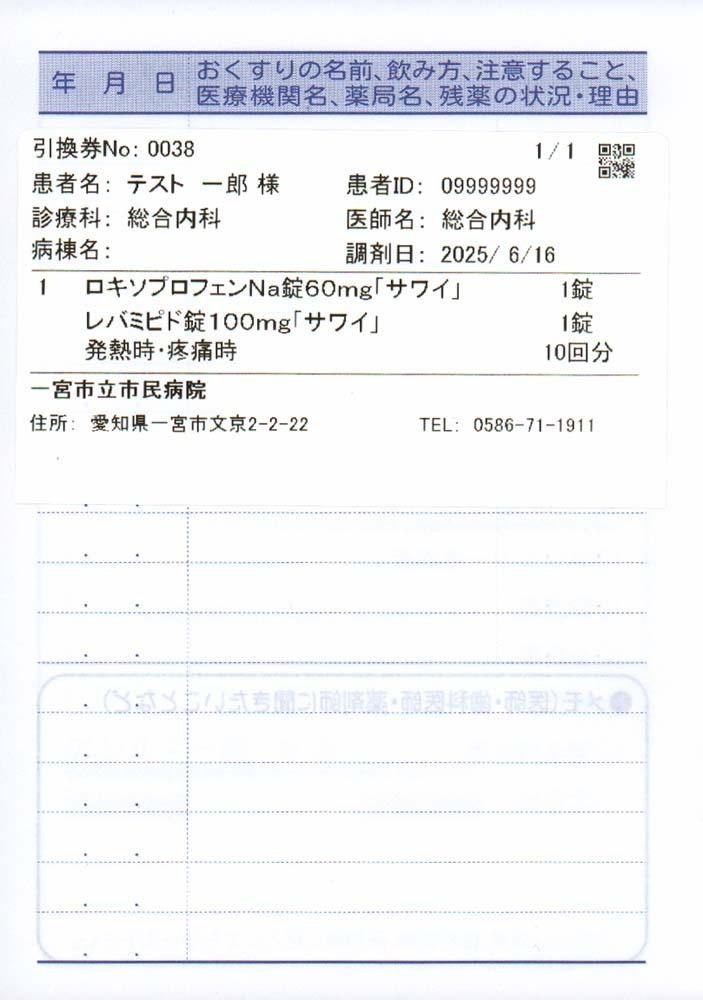 年 月 日 おくすりの名前、飲み方、注意すること、
医療機関名、薬局名、残薬の状況・理由
引換券No: 0038 1/ 1
患者名: テスト 一郎 様 患者ID: 09999999
診療科: 総合内科 医師名: 総合内科
病棟名: 調剤日: 2025/ 6/16
1 ロキソプロフェンNa錠60mg「サワイ」 1錠
レバミピド錠100mg「サワイ」 1錠
発熱時・疼痛時 10回分
一宮市立市民病院
住所: 愛知県一宮市文京2-2-22 TEL: 0586-71-1911
メモ(医師・歯科医師・薬剤師に聞きたいことなど)